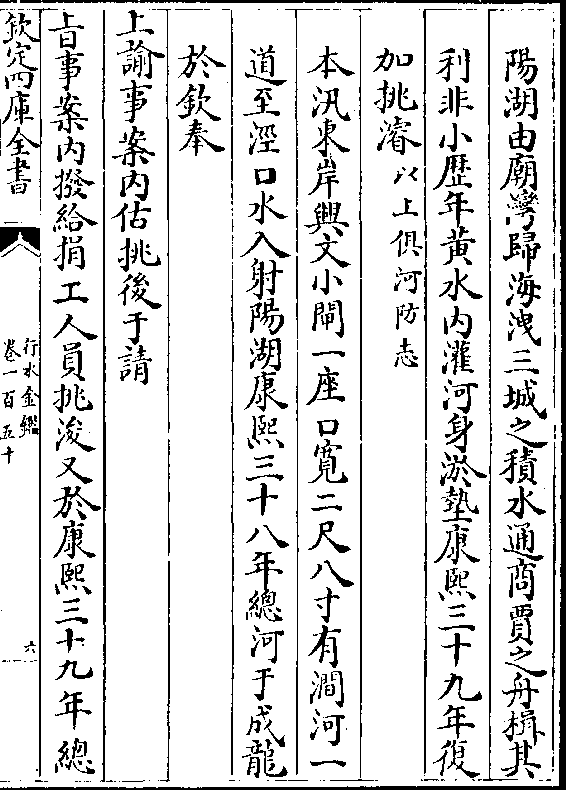 陽湖由廟灣歸海洩三城之積水通商賈之舟楫其
利非小歷年黃水内灌河身淤墊康熙三十九年復
加挑濬以上俱河防志
本汛東岸興文小閘一座口寬二尺八寸有澗河一
道至涇口水入射陽湖康熙三十八年總河于成龍
於欽奉
上諭事案内估挑後于請
旨事案内撥給捐工人員挑浚又於康熙三十九年總
欽定四庫全書
行水金鑑
卷一百五十
六